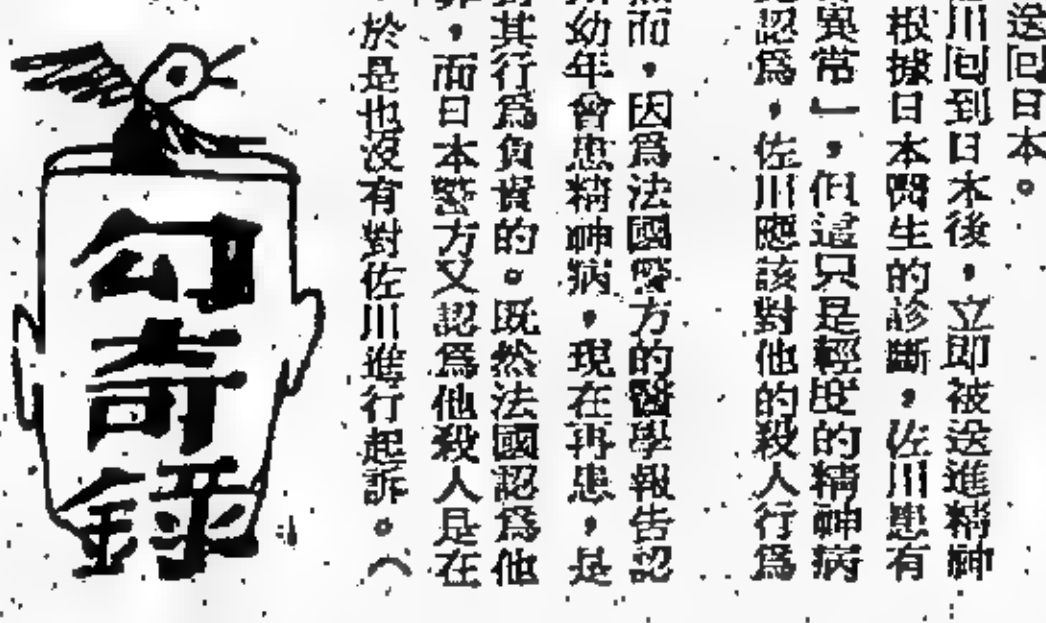 送回日本。
川回到日本後，立即被送進精神
根據日本醫生的診斷，佐川患有
異常」，但這只是輕度的精神病
認爲，佐川應該對他的殺人行爲
而，因爲法國警方的醫學報告認
幼年曾患精神病，現在再患，是
其行爲負責的。既然法國認爲他
，而日本警方又認爲他殺人是在
於是也沒有對佐川進行起訴。（
幻奇錄